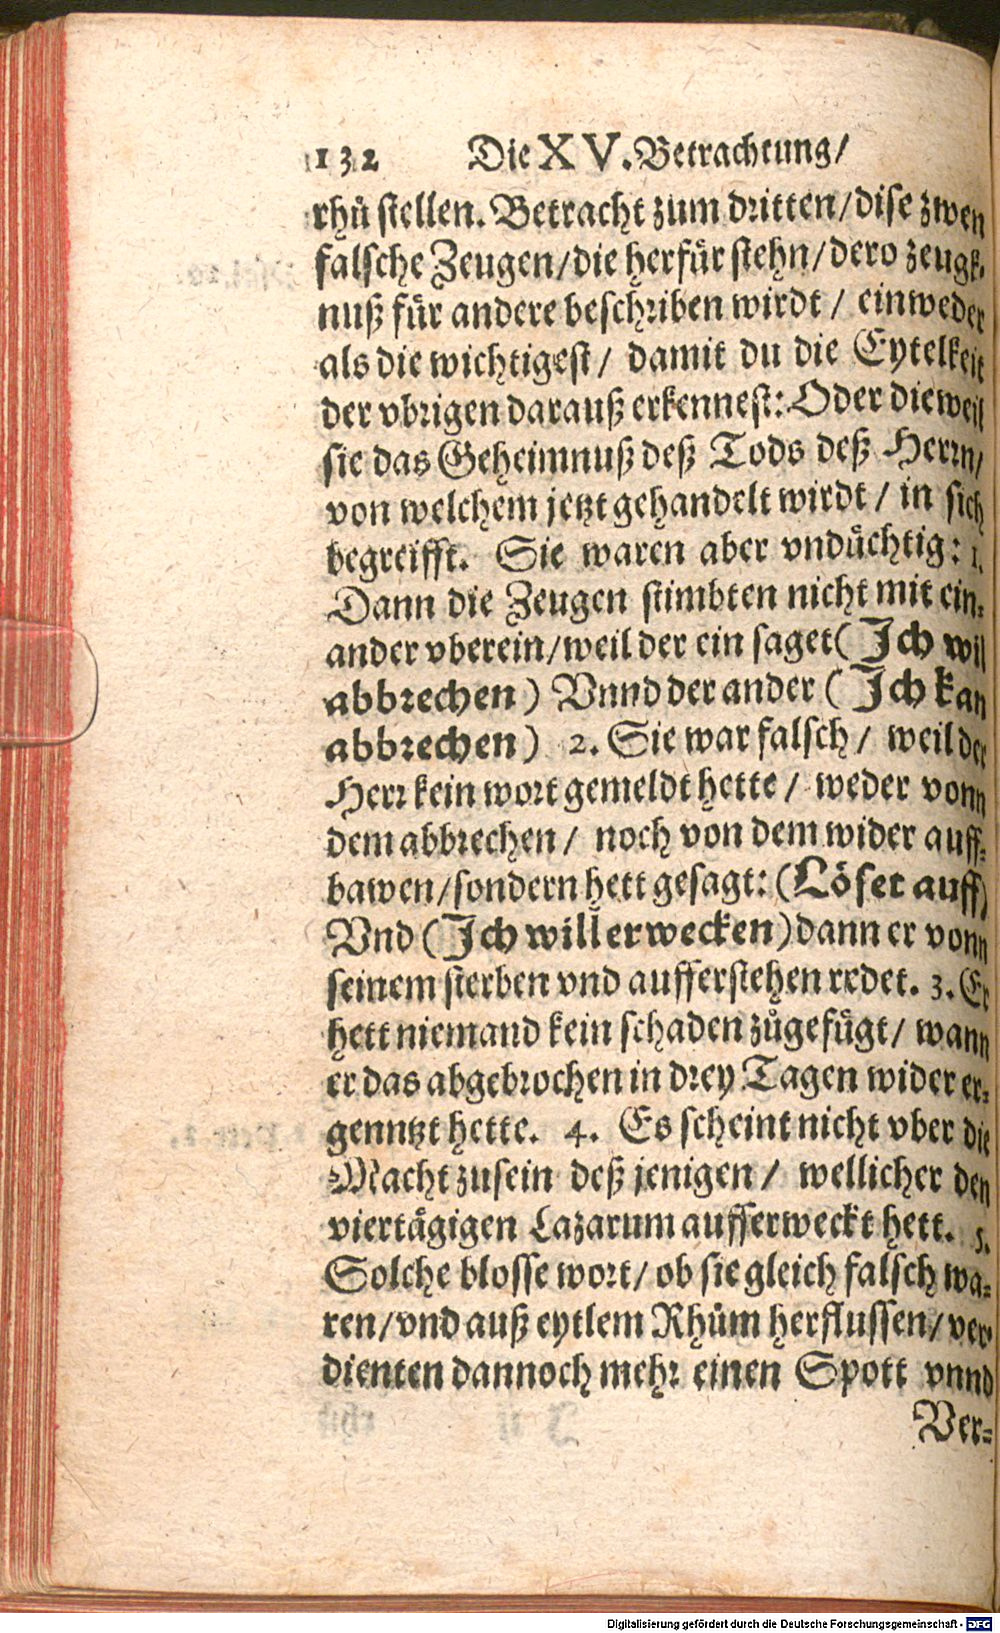 132 Die XV. Betrachtung/
rhů stellen. Betracht zum dritten/dise zwen
falsche Zeugen/die herfür stehn/dero zeugk-
nuß für andere beschriben wirdt/ einweder
als die wichtigest/ damit du die Eytelkeit
der vbrigen darauß erkennest: Oder dieweil
sie das Geheimnuß deß Tods deß Herrn/
von welchem jetzt gehandelt wirdt/ in sich
begreifft. Sie waren aber vndüchtig: 1.
Dann die Zeugen stimbten nicht mit ein-
ander vberein/weil der ein saget (Ich wil
abbrechen) Vnnd der ander (Ich kan
abbrechen) 2. Sie war falsch/ weil der
Herr kein wort gemeldt hette/ weder vonn
dem abbrechen/ noch von dem wider auff-
bawen/sondern hett gesagt: (Löset auff)
Vnd (Ich will erwecken) dann er vonn
seinem sterben vnd aufferstehen redet. 3. Er
hett niemand kein schaden zůgefügt/ wann
er das abgebrochen in drey Tagen wider er-
genntzt hette. 4. Es scheint nicht vber die
Macht zusein deß jenigen/ wellicher den
viertägigen Lazarum aufferweckt hett. 5.
Solche blosse wort/ ob sie gleich falsch wa-
ren/vnd auß eytlem Rhům herflussen/ver-
dienten dannoch mehr einen Spott vnnd
Ver-
Digitalisierung gefördert durch die Deutsche Forschungsgemeinschaft - DFG